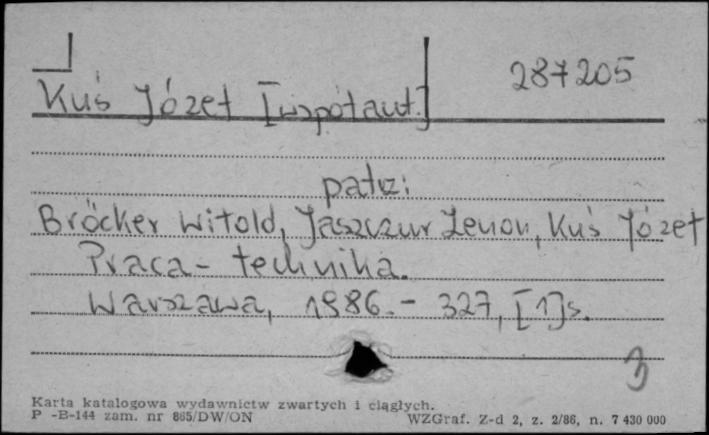 287205
Kuś Józef [współaut.]
patrz:
Bröcker Witold, Jaszczur Zenon, Kuś Józef
Praca - technika.
Warszawa, 1986. - 327, [1] s.
3
Karta katalogowa wydawnictw zwartych i ciągłych.
P -B-144 zam. nr 865/DW/ON WZGraf. Z-d 2, z. 2/86, n. 7 430 000